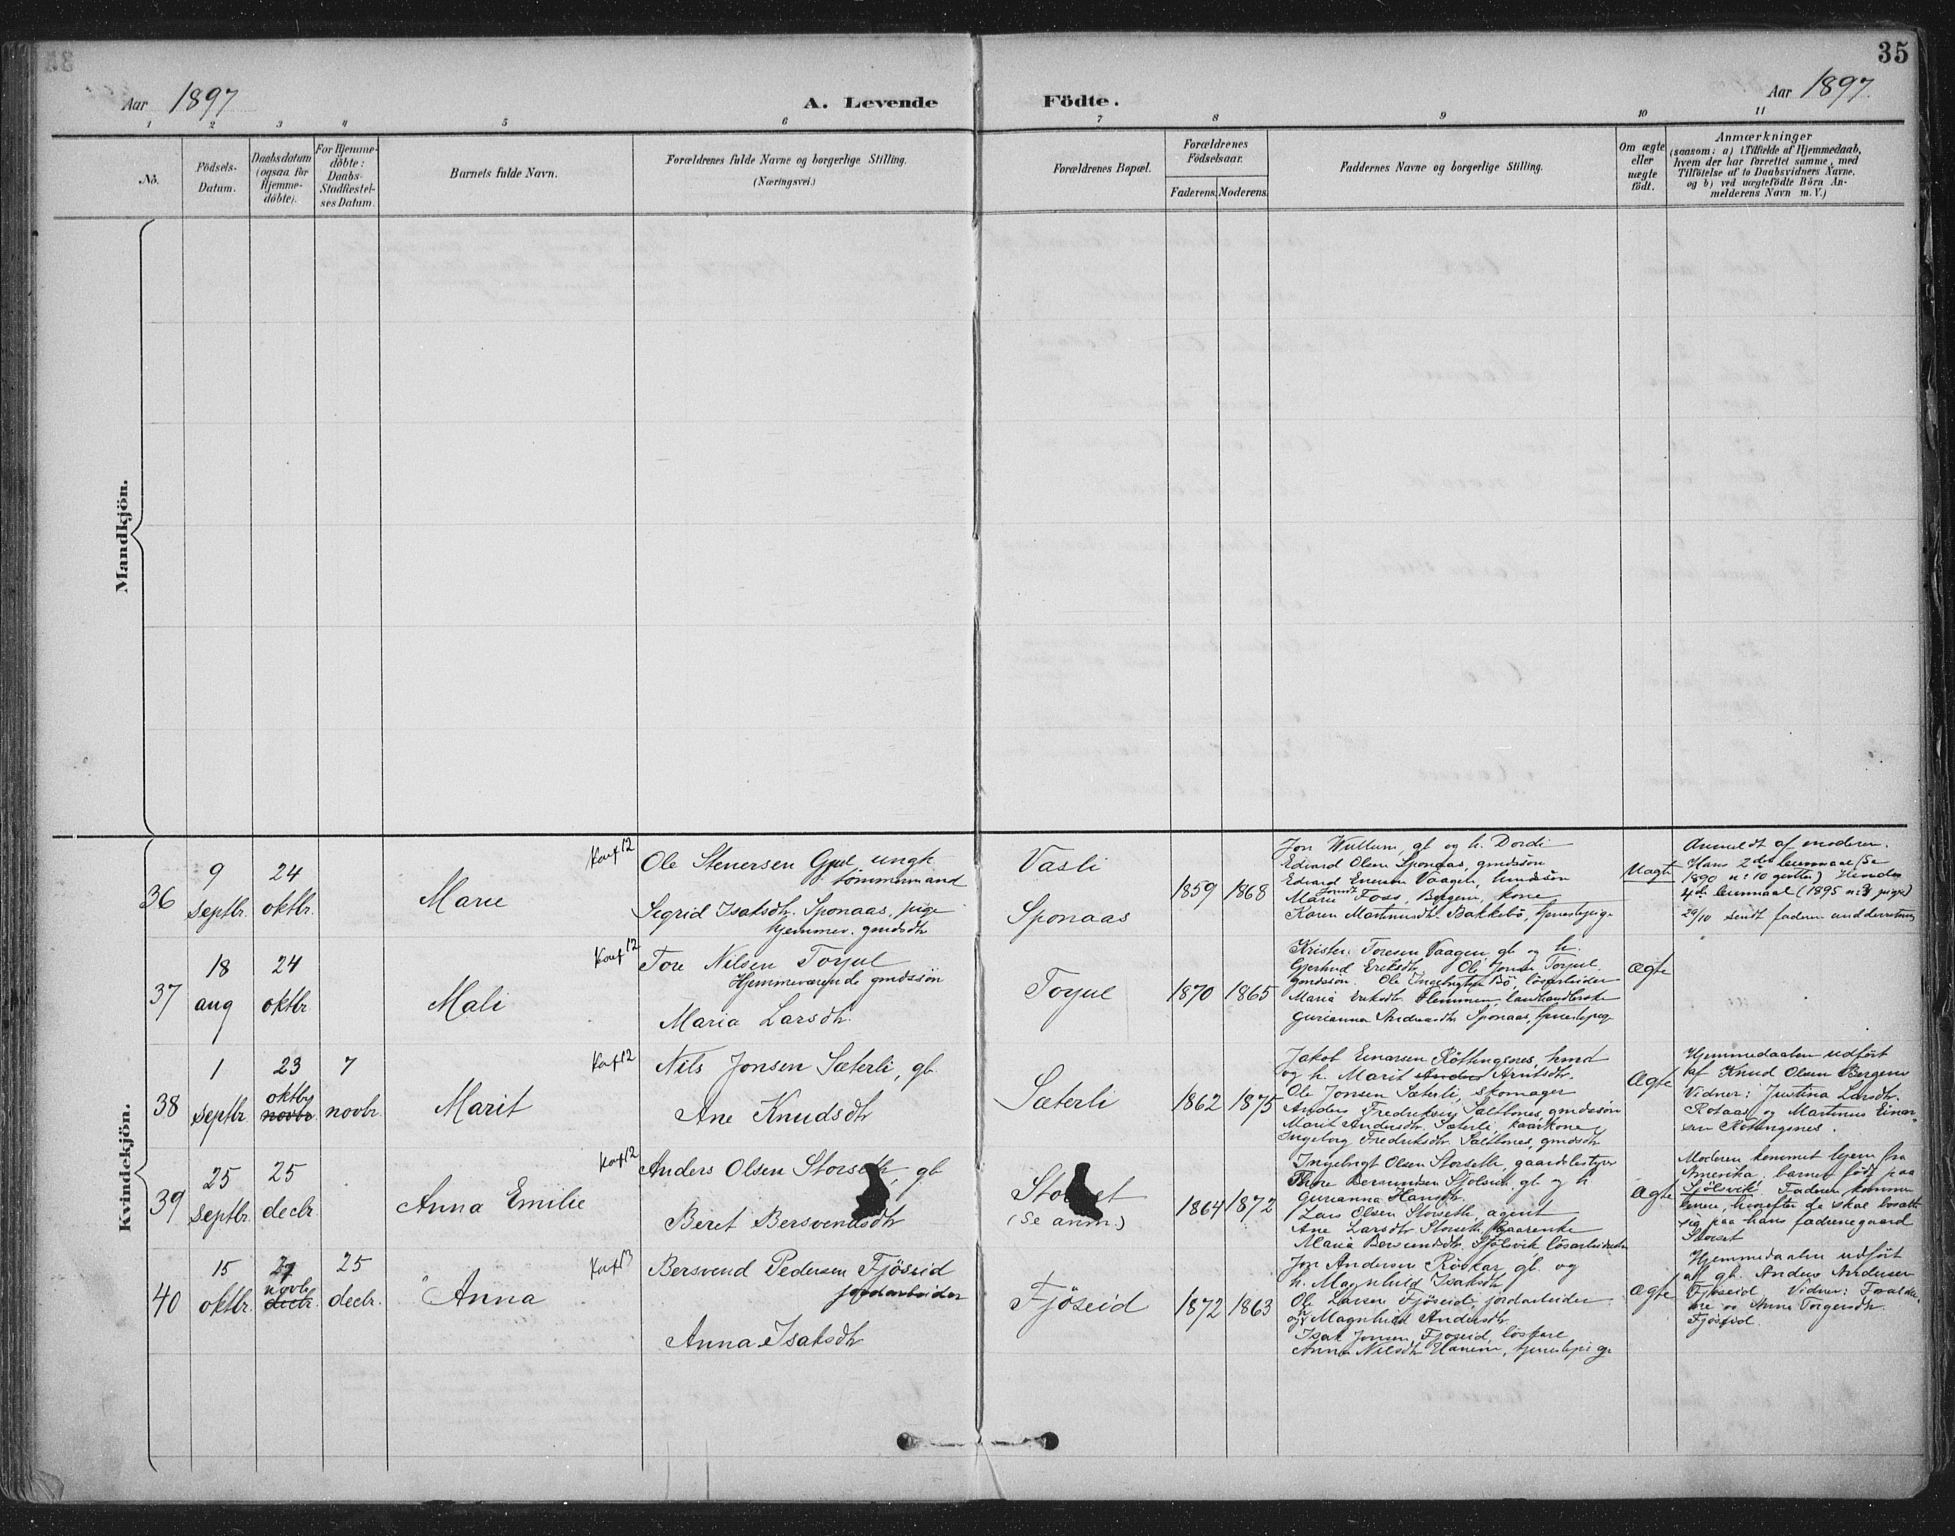 35
Aar 1897
A. Levende Födte.
Aar 1897.
1 2 3 4 5 6 7 8 9 10 11
No.
Födsels-
Datum.
Daabsdatum
(ogsaa for
Hjemme-
döbte).
For Hjemme-
döbte:
Daabs-
Stadfæstel-
ses Datum.
Barnets fulde Navn.
Forældrenes fulde Navne og borgerlige Stilling.
(Næringsvei.)
Forældrenes Bopæl.
Forældrenes
Födselsaar.
Faderens. Moderens.
Faddernes Navne og borgerlige Stilling.
Om ægte
eller
uægte
födt.
Anmærkninger
(saasom: a) i Tilfælde af Hjemmedaab,
hvem der har forrettet samme, med
Tilföielse af to Daabsvidners Navne,
og b) ved uægtefödte Börn An-
melderens Navn m. V.)
Mandkjön.
Kvindekjön.
36
9
septbr.
24
oktbr.
Marie
Konf 12
Ole Stenersen Gjul ungk.
tömmermand
Segrid Isaksdtr. Sponaas, pige
hjemmev. gmdsdtr
Vasli
Sponaas
1859 1868
Jon Wullum, gb og h. Dordi
Edvard Olsen Sponaas, gmdssön
Edvard Vaagen, gmdssön
Marie Foss, Bergem, kone
Karen Martinusdtr. Bakkebö, tjenestepige
Uægte
Anmeldt af moderen.
Hans 2det leiermaal (Se
1890 n: 10 gutter) Hendes
4de leiermaal (1895 n: 3 piger)
29/10 sendt faderen underretning
37
18
aug
24
oktbr.
Mali
Konf 12
Tore Nilsen Torjul
Hjemmeværende gmdssön
Maria Larsdtr.
Torjul
1870 1865
Krister Toresen Vaagen, gb og h.
Gjertrud Eriksdtr Ole Jonsen Torjul
gmdssön. Ole Ingebrigtsen Bö, lösarbeider
Maria Eriksdtr. Flemmen, landhandlerske
Gurianna Andersdtr Sponaas, tjenestepige
Ægte
38
1
septbr.
23
oktbr
novbr.
7
novbr
Marit
Konf 12
Nils Jonsen Sæterli, gb.
Ane Knudsdtr
Sæterli
1862 1875
Jakob Einarsen Röttingsnes, hmd
og h. Marit Anders Arntsdtr.
Ole Jonsen Sæterli, skomager
Anders Fredriksen Saltbones, gmdssön
Marit Andersdtr. Sæterli, kaarkone
Ingeborg Fredriksdtr. Saltbones, gmdsdtr
Ægte
Hjemmedaaben udført
af Knud Olsen Bergem
Vidner: Justina Larsdtr.
Rotaas og Martinus Einar-
sen Röttingsnes.
39
25
septbr.
25
decbr
Anna Emilie
Konf 12
Anders Olsen Storseth, gb
Beret Bersvendsdtr
Storset
(Se anm)
1864 1872
Ingebrigt Olsen Storseth, gaardbestyrer
gb og h
Gurianna Hansdtr.
Lars Olsen Storseth, agent
Ane Larsdtr Storseth, gaarenke
Maria Bersvendsdtr. Sjölsvik, lösarbeiderske
Ægte
Moderen kommet hjem fra
Amerika, barnet född paa
Sjölsvik. Faderen kommer
senere, hvorefter de skal bosætte
sig paa hans fædrenegaard
Storset
40
15
oktbr.
27
novbr
decbr.
25
decbr.
Anna
Konf 13
Bersvend Pedersen Fjöseid
jordarbeider
Anna Isaksdtr
Fjöseid
1872 1863
Jon Andersen Röskar, gb. og
h. Magnhild Isaksdtr
Ole Larsen Fjöseid, jordarbeider
og h Magnhild Andersdtr
Isak Jonsen, Fjöseid, löskare
Anne Nilsdtr Hanem, tjenestepige
Ægte
Hjemmedaaben udført
af gb. Anders Andersen
Fjöseid Vidner: Foræld-
rene og Anne Torgersdtr.
Fjöseid.